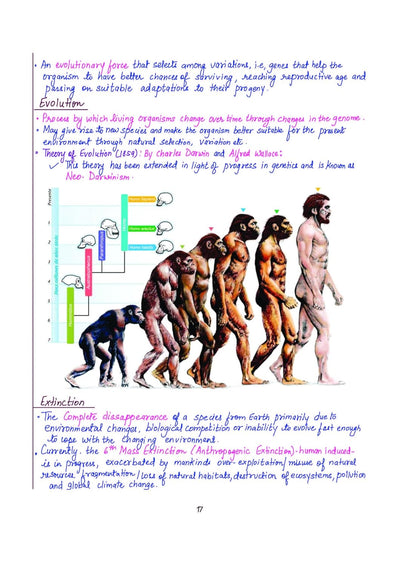 • An evolutionary force that selects among variations, i.e, genes that help the
organism to have better chances of surviving, reaching reproductive age and
passing on suitable adaptations to their progeny.
Evolution
• Process by which living organisms change over time through changes in the genome.
• May give rise to new species and make the organism better suitable for the present
environment through natural selection, variation etc.
• Theory of Evolution (1859): By Charles Darwin and Alfred Wallace:
✓ This theory has been extended in light of progress in genetics and is known as
Neo-Darwinism.
Presente
1
2
3
4
5
6
7
Homo sapiens
Homo erectus
Homo habilis
Extinction
• The Complete dissappearance of a species from Earth primarily due to
environmental changes, biological competition or inability to evolve fast enough
to cope with the changing environment.
• Currently, the 6th Mass Extinction (Anthropogenic Extinction)-human induced-
is in progress, exacerbated by mankinds over-exploitation/misuse of natural
resources, fragmentation/loss of natural habitats, destruction of ecosystems, pollution
and global climate change.
17